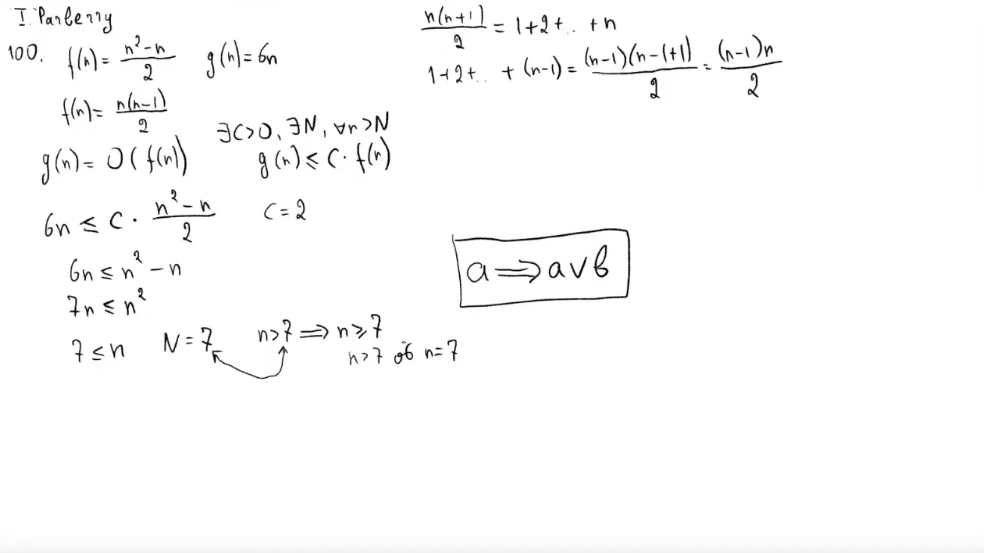 I. Parberry
100. f(n) = (n² - n)/2 g(n) = 6n
f(n) = n(n-1)/2
g(n) = O(f(n)) ∃C>0, ∃N, ∀n>N
g(n) ≤ C · f(n)
6n ≤ C · (n² - n)/2 C = 2
6n ≤ n² - n
7n ≤ n²
7 ≤ n N = 7 n>7 ⟹ n ≥ 7
n>7 n=7
n(n+1)/2 = 1+2+.. +n
1+2+.. + (n-1) = (n-1)(n-1+1)/2 = (n-1)n/2
a ⟹ a ∨ b